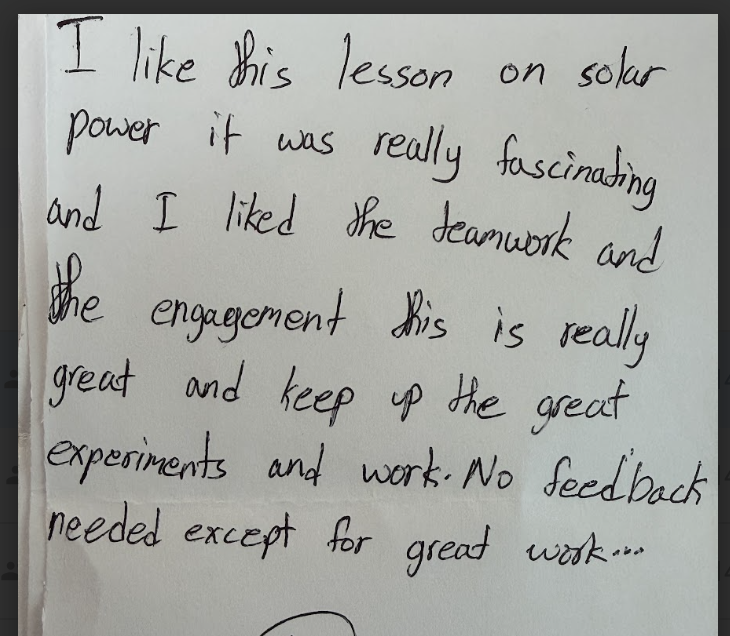 I like this lesson on solar
power it was really fascinating
and I liked the teamwork and
the engagement this is really
great and keep up the great
experiments and work. No feedback
needed except for great work...